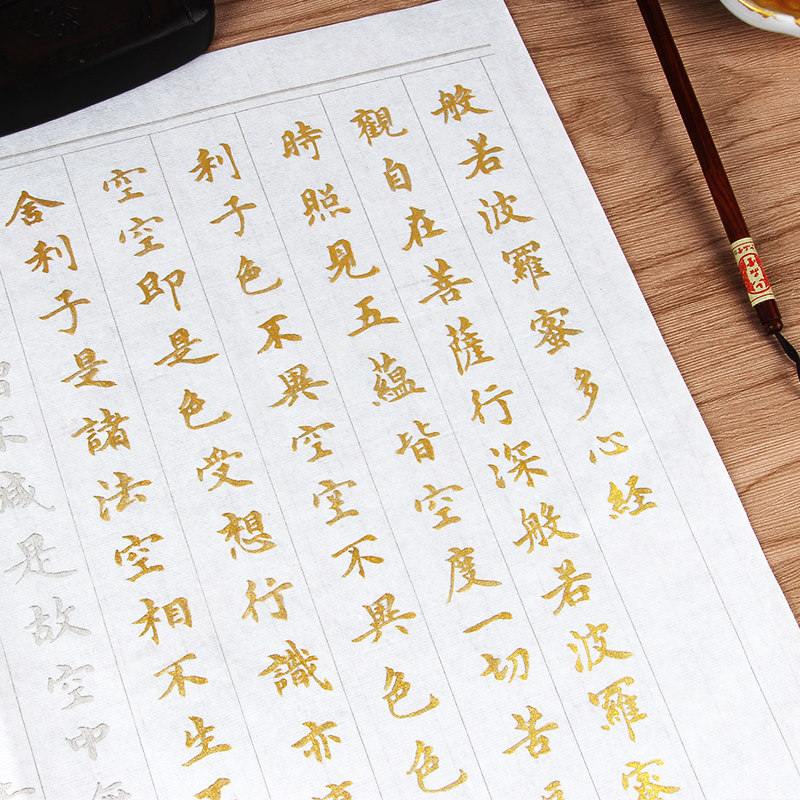 般若波羅蜜多心経
觀自在菩薩行深般若波羅蜜
時照見五蘊皆空度一切苦
利子色不異空空不異色色
空空即是色受想行識亦
舍利子是諸法空相不生
不減是故空中